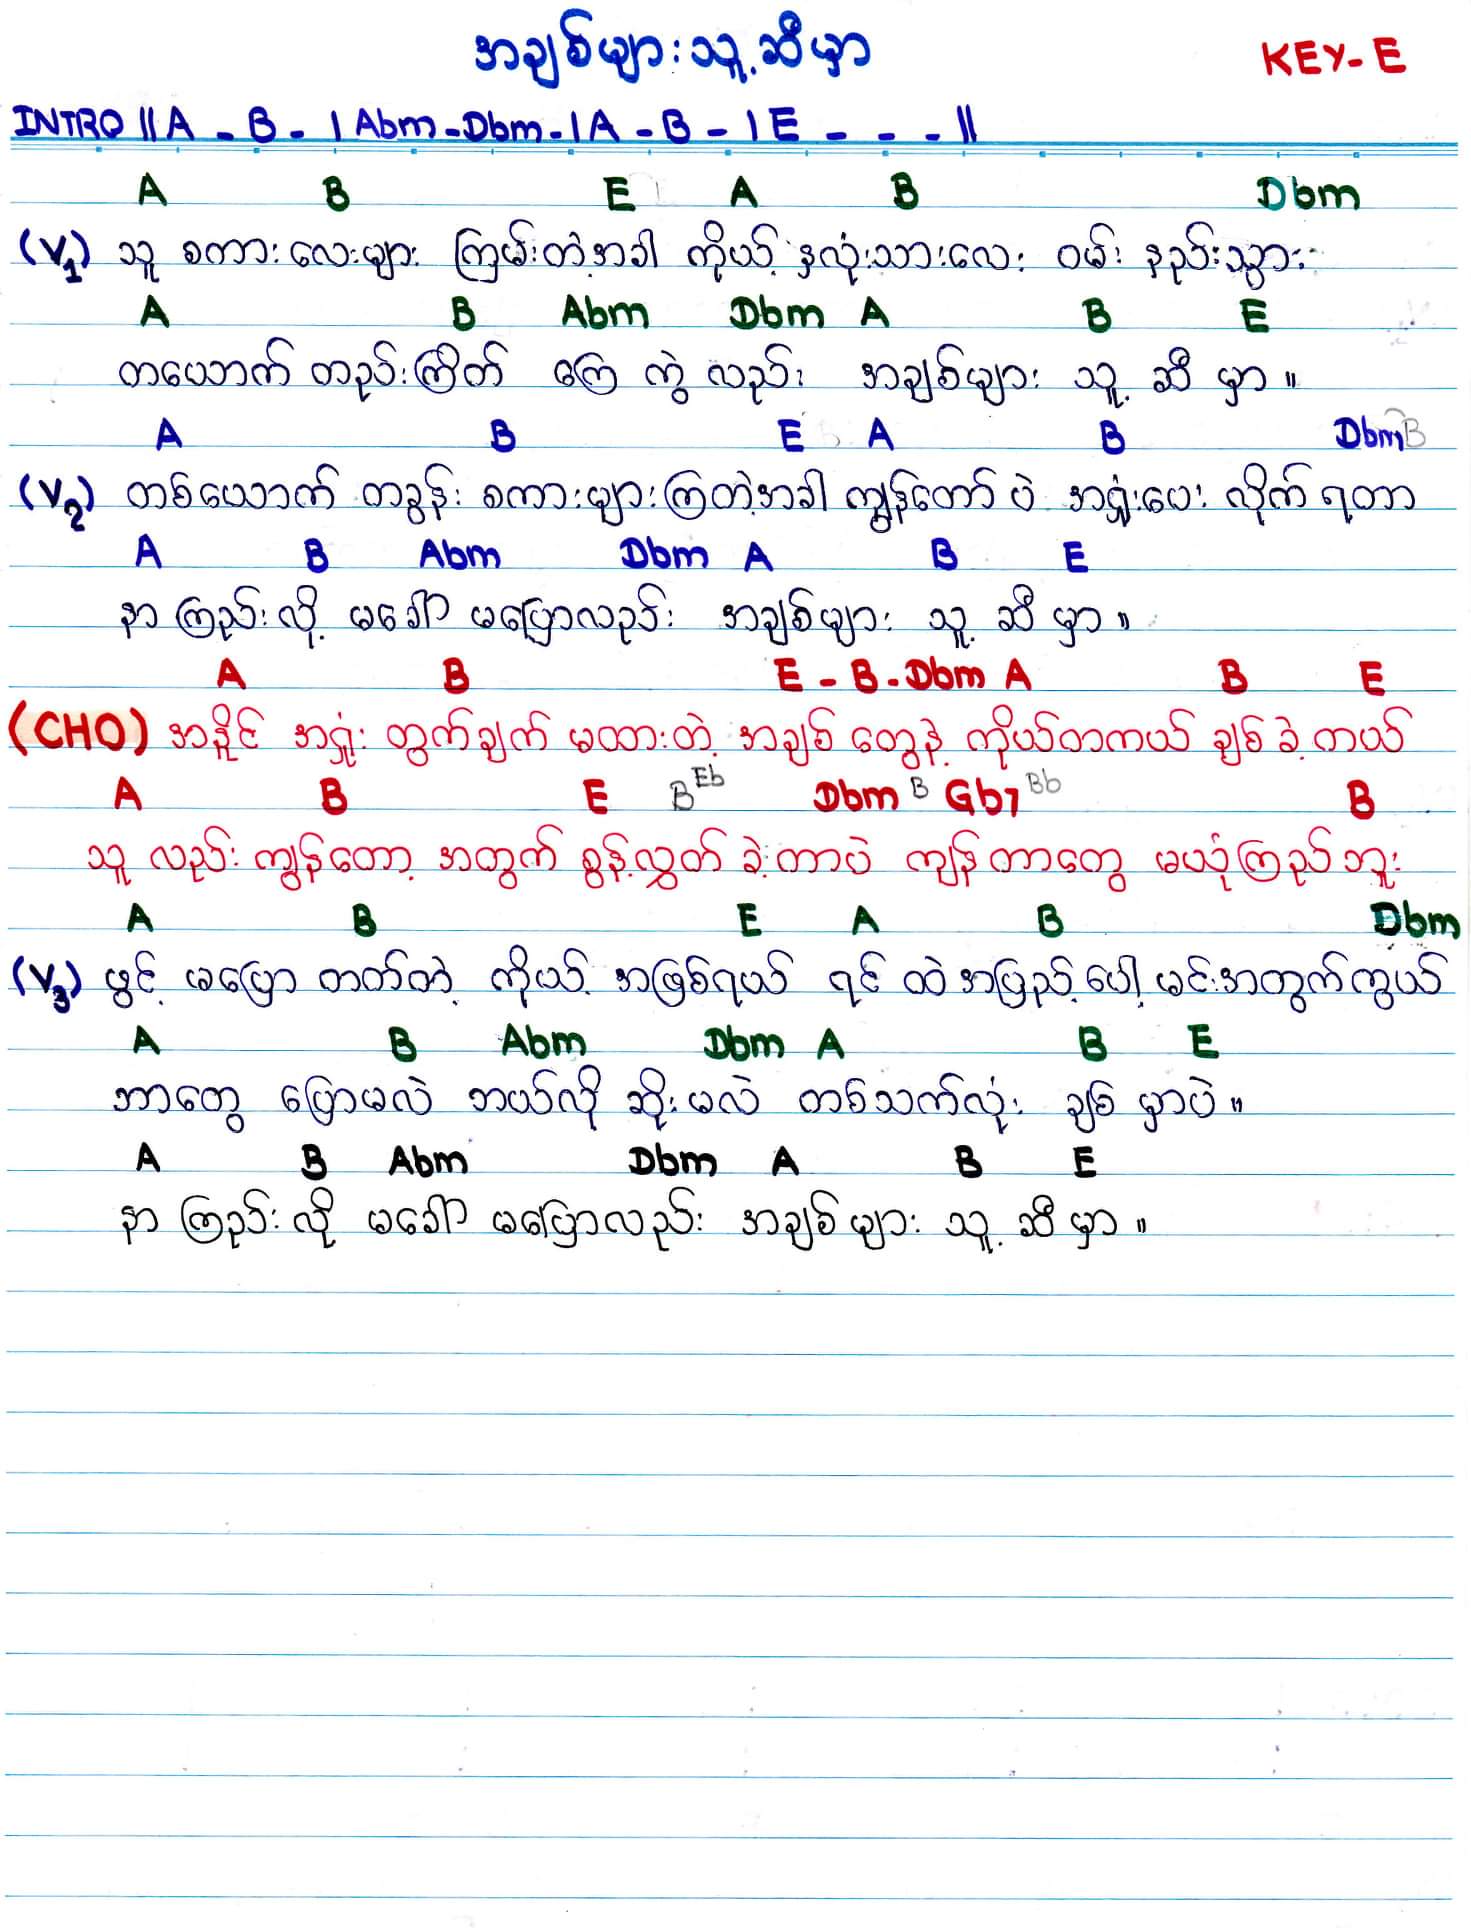 အချစ်များသူ့ဆီမှာ
KEY-E
INTRO ||A - B - | Abm - Dbm - | A - B - | E - - - ||
A B E A B Dbm
(V1) သူ စကားလေးများ ကြမ်းတဲ့အခါ ကိုယ့် နှလုံးသားလေး ဝမ်း နည်းသွား
A B Abm Dbm A B E
တယောက် တည်းကြိတ် ကြေ ကွဲ လည်း အချစ်များ သူ့ ဆီ မှာ။
A B E A B Dbm B
(V2) တစ်ယောက် တခွန်း စကားများကြတဲ့အခါ ကျွန်တော် ပဲ အရှုံးပေး လိုက် ရတာ
A B Abm Dbm A B E
နာ ကြည်း လို့ မခေါ် မပြောလည်း အချစ်များ သူ့ ဆီ မှာ။
A B E - B - Dbm A B E
(CHO) အနိုင် အရှုံး တွက်ချက် မထားတဲ့ အချစ် တွေနဲ့ ကိုယ်တကယ် ချစ် ခဲ့ တယ်
A B E B Eb Dbm B Gb7 Bb B
သူ လည်း ကျွန်တော့ အတွက် စွန့်လွှတ် ခဲ့တာပဲ ကျန် တာတွေ မယုံကြည် ဘူး
A B E A B Dbm
(V3) ဖွင့် မပြော တတ်တဲ့ ကိုယ့် အဖြစ်ရယ် ရင် ထဲ အပြည့် ပေါ့ မင်းအတွက်ကွယ်
A B Abm Dbm A B E
ဘာတွေ ပြောမလဲ ဘယ်လို ဆိုးမလဲ တစ်သက်လုံး ချစ် မှာပဲ။
A B Abm Dbm A B E
နာ ကြည်း လို့ မခေါ် မပြောလည်း အချစ်များ သူ့ ဆီ မှာ။